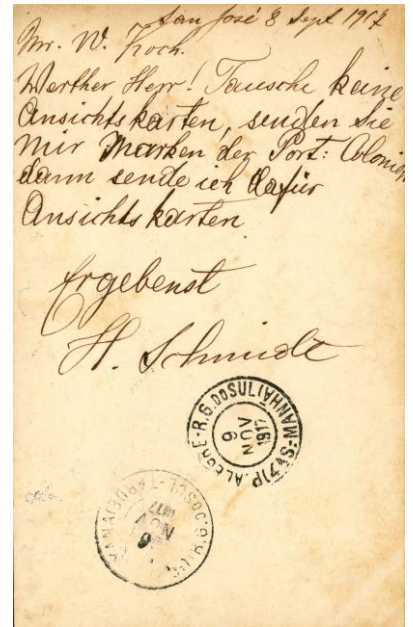 San José 8 Sept 1917
Mr. W. Koch.
Werther Herr! Tausche keine
Ansichtskarten, senden Sie
mir Marken der Port: Colonien
dann sende ich dafür
Ansichtskarten
Ergebenst
H. Schmidt
P. ALEGRE-R.G. DO SUL (MANHÃ)
9
NOV
1917
NOV